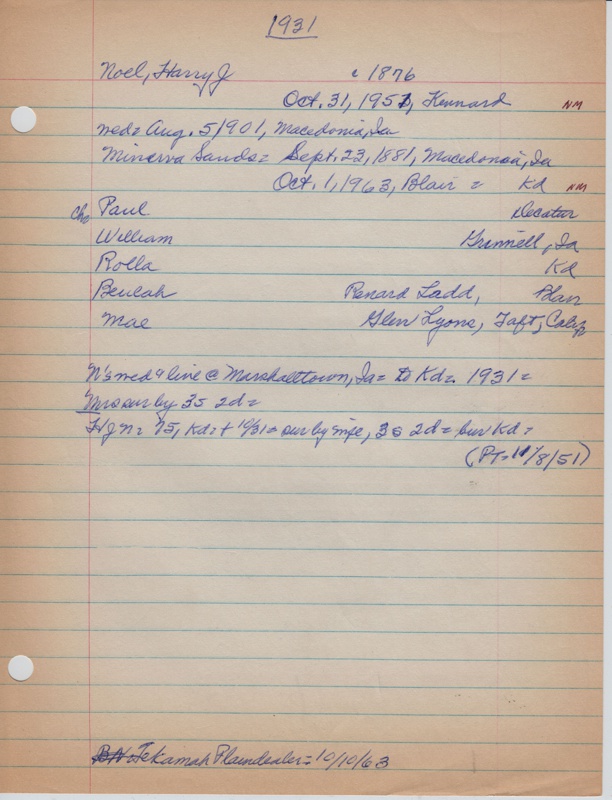 1931
Noel, Harry J c 1876
Oct. 31, 1951, Kennard NM
wed= Aug. 5, 1901, Macedonia, Ia
Minerva Sands= Sept. 23, 1881, Macedonia, Ia
Oct. 1, 1963, Blair = Kd NM
Ch= Paul Decatur
William Grinnell, Ia
Rolla Kd
Beulah Renard Ladd, Blair
Mae Glen Lyons, Taft, Calif
N's wed & live @ Marshalltown, Ia= to Kd= 1931=
Mrs sur by 3s 2d=
HJN= 75, Kd= + 10/31= sur by wife, 3s 2d= bur Kd=
(PT= 11/8/51)
Tekamah Plaindealer= 10/10/63